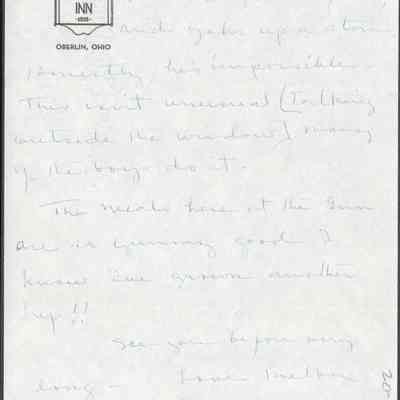 INN
OBERLIN, OHIO
and yaks up a storm
Honestly he's impossible.
This isn't unusual [talking
outside the window] many
of the boys do it.
The meals here at the Inn
are so yummy good I
know I've grown another
hip!!
See you before very
long - Love
20